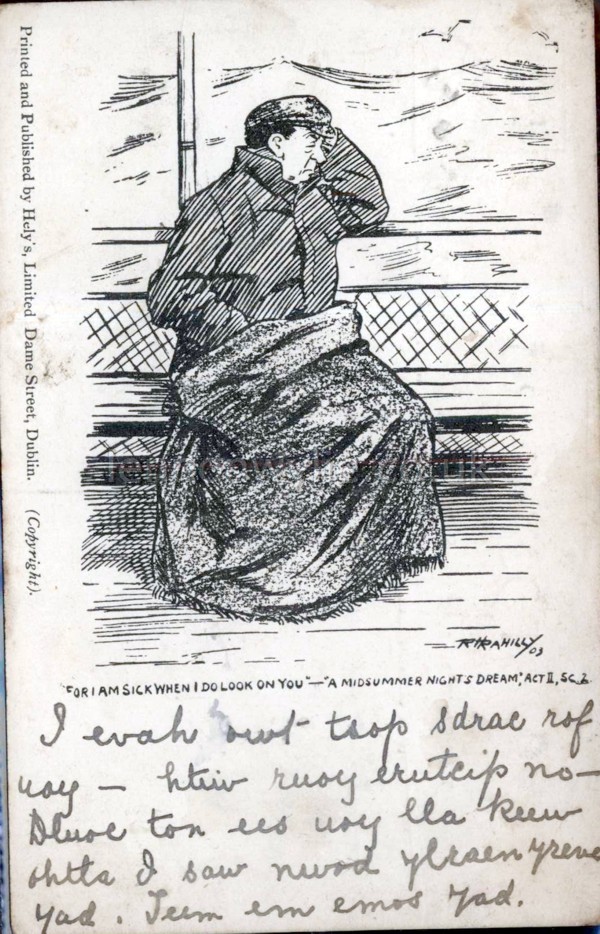 Printed and Published by Hely's, Limited Dame Street, Dublin. (Copyright).
RAHILLY 03
"FOR I AM SICK WHEN I DO LOOK ON YOU"—"A MIDSUMMER NIGHT'S DREAM," ACT II, SC. 2.
I evah owt tsop sdrac rof
uoy — htiw ruoy erutcip no —
Dluoc ton ees uoy lla keew
ohtla I saw nwod ylraen yreve
yad. Teem em emos yad.